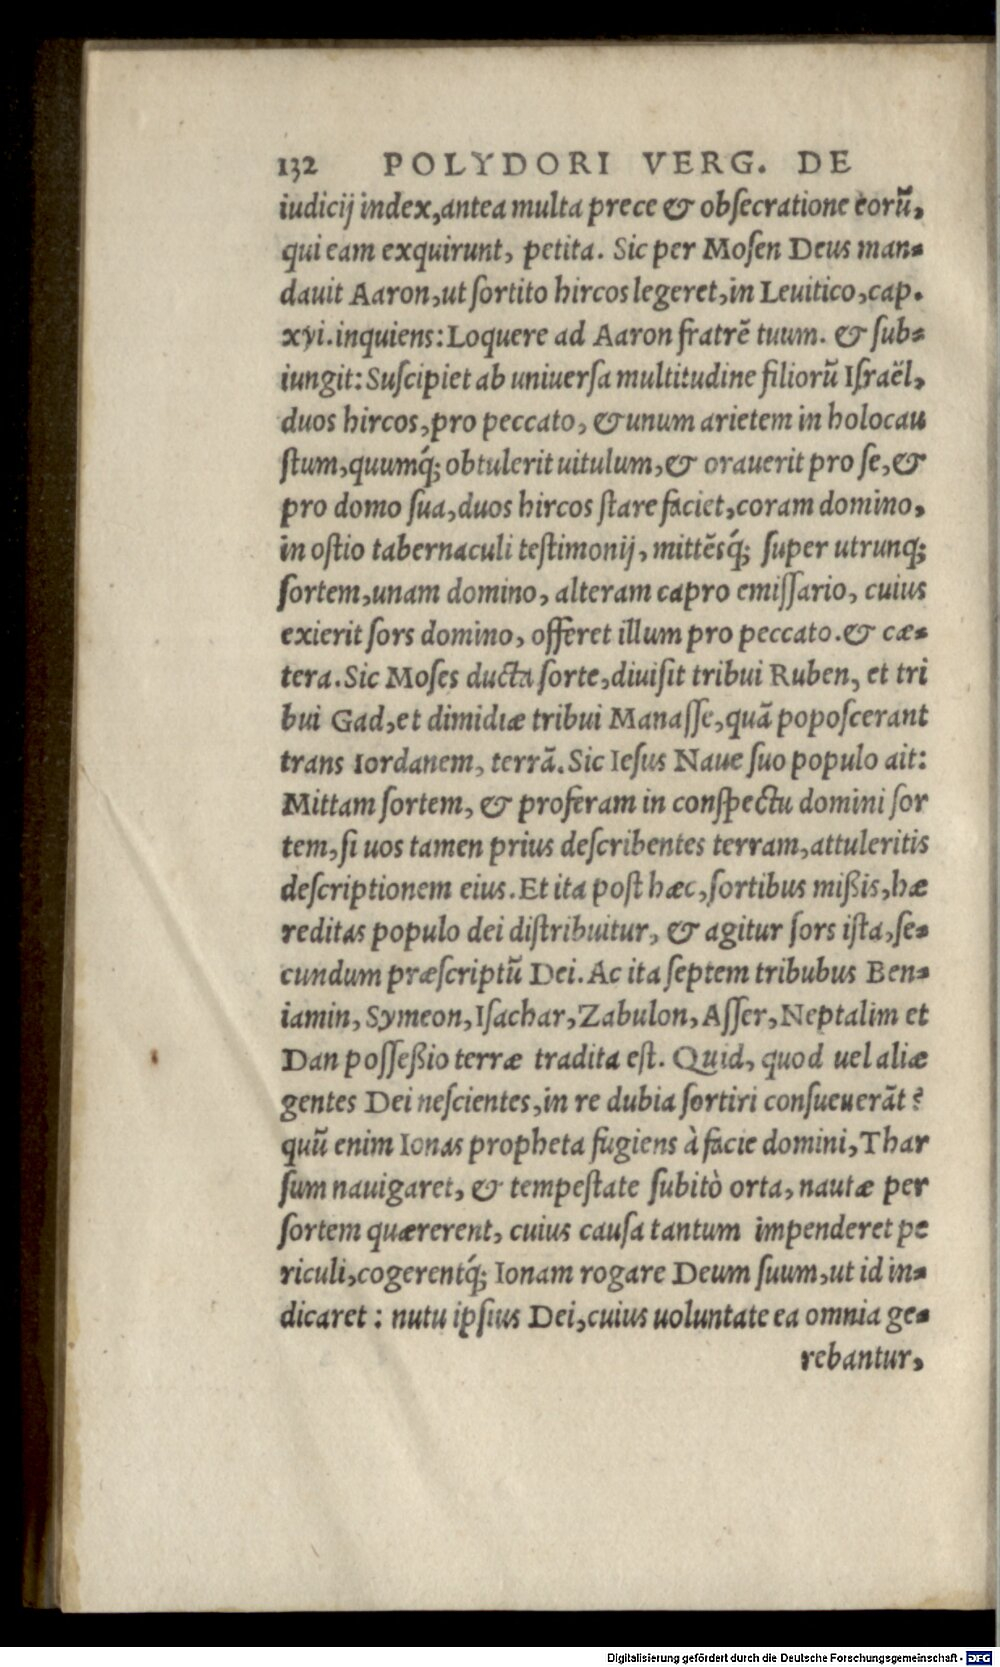 132 POLYDORI VERG. DE
iudicij index, antea multa prece & obsecratione eorũ,
qui eam exquirunt, petita. Sic per Mosen Deus man-
dauit Aaron, ut sortito hircos legeret, in Leuitico, cap.
xvi. inquiens: Loquere ad Aaron fratrẽ tuum. & sub-
iungit: Suscipiet ab uniuersa multitudine filiorũ Israël,
duos hircos, pro peccato, & unum arietem in holocau
stum, quumq́; obtulerit uitulum, & orauerit pro se, &
pro domo sua, duos hircos stare faciet, coram domino,
in ostio tabernaculi testimonij, mittẽsq́; super utrunq;
sortem, unam domino, alteram capro emissario, cuius
exierit sors domino, offeret illum pro peccato. & cæ-
tera. Sic Moses ducta sorte, diuisit tribui Ruben, et tri
bui Gad, et dimidiæ tribui Manasse, quã poposcerant
trans Iordanem, terrã. Sic Iesus Naue suo populo ait:
Mittam sortem, & proferam in conspectu domini sor
tem, si uos tamen prius describentes terram, attuleritis
descriptionem eius. Et ita post hæc, sortibus mißis, hæ
reditas populo dei distribuitur, & agitur sors ista, se-
cundum præscriptũ Dei. Ac ita septem tribubus Ben-
iamin, Symeon, Isachar, Zabulon, Asser, Neptalim et
Dan possessio terræ tradita est. Quid, quod uel aliæ
gentes Dei nescientes, in re dubia sortiri consueuerãt?
quũ enim Ionas propheta fugiens à facie domini, Thar
sum nauigaret, & tempestate subitò orta, nautæ per
sortem quærerent, cuius causa tantum impenderet pe
riculi, cogerentq́; Ionam rogare Deum suum, ut id in-
dicaret: nutu ipsius Dei, cuius uoluntate ea omnia ge-
rebantur,
Digitalisierung gefördert durch die Deutsche Forschungsgemeinschaft - DFG